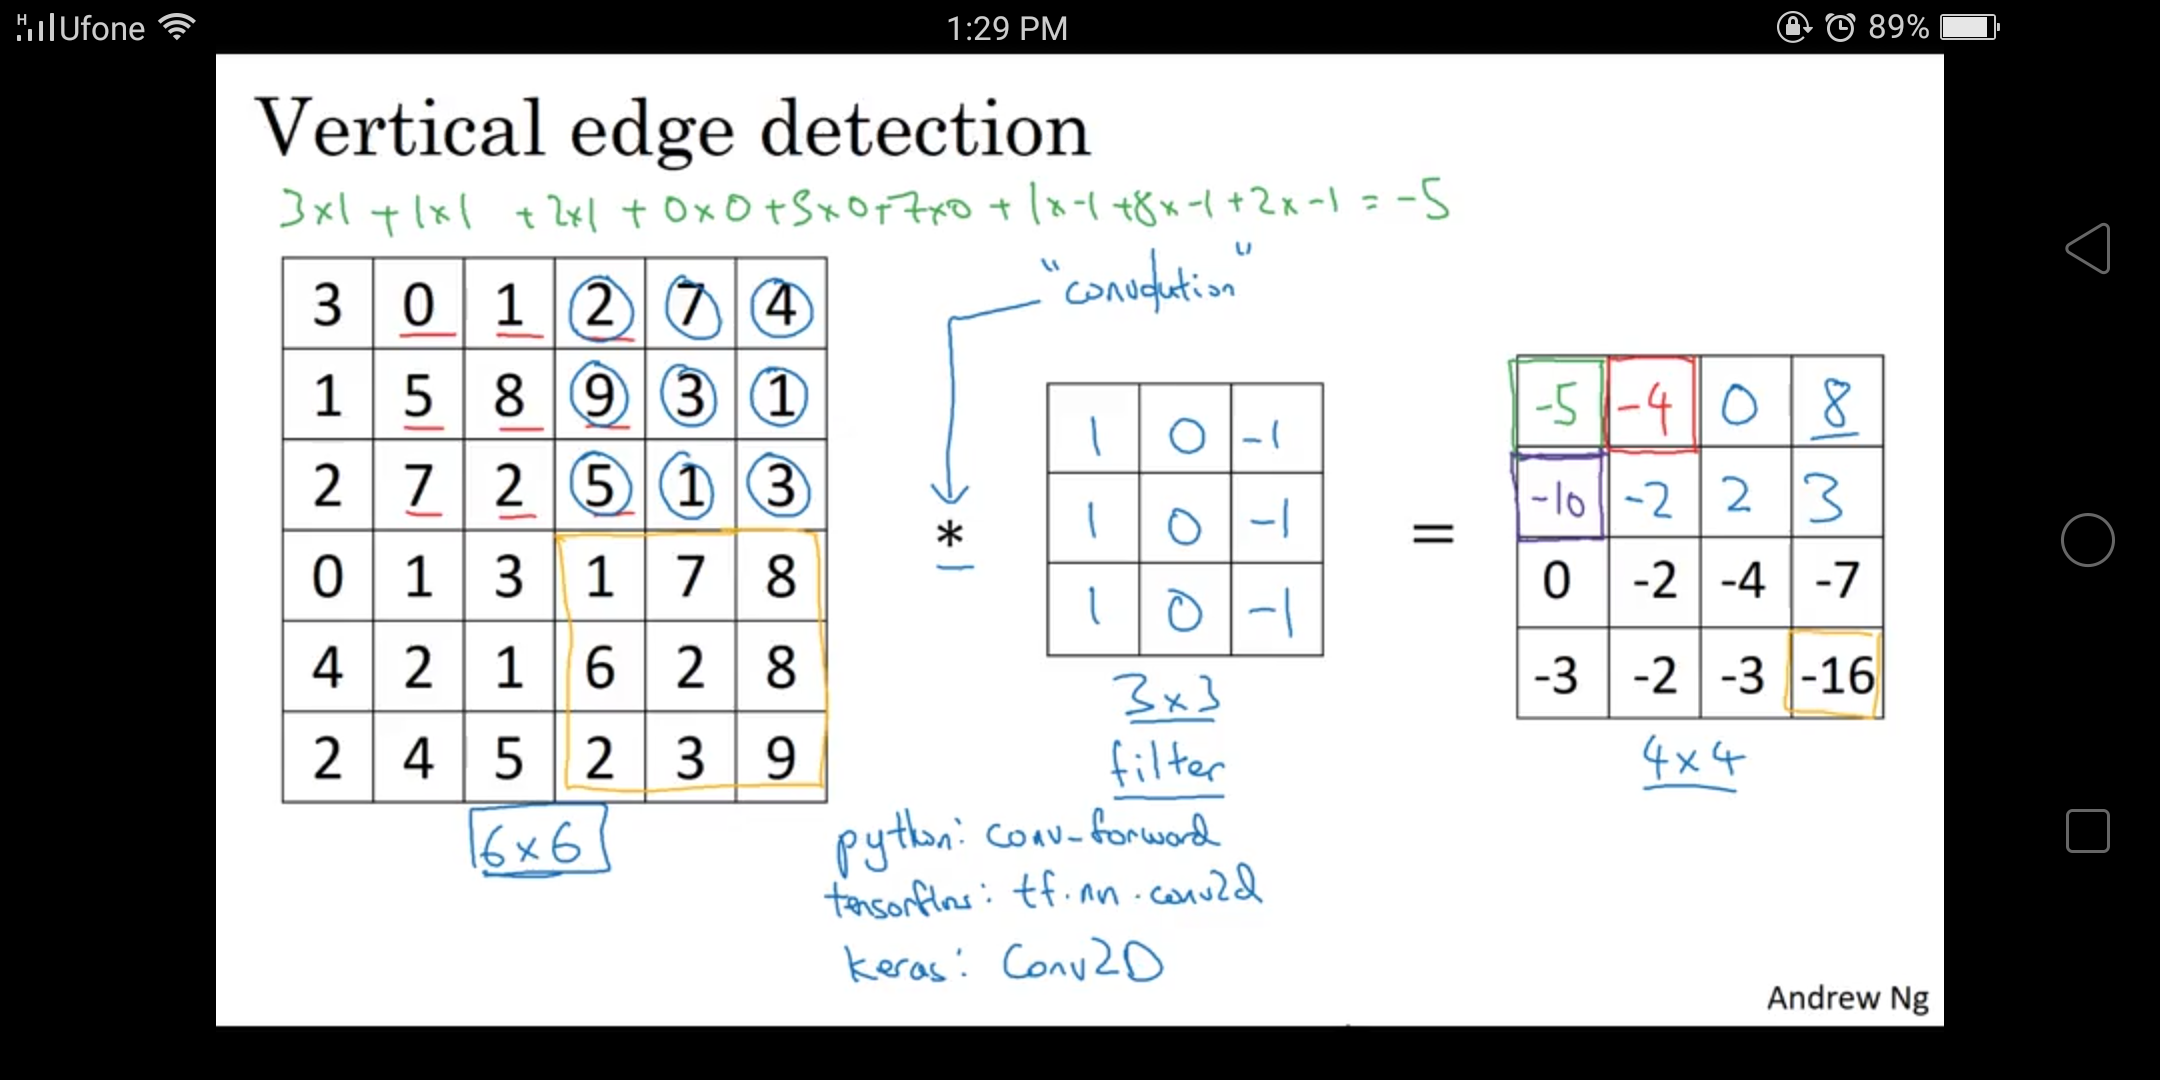 H Ufone 1:29 PM 89%
Vertical edge detection
3x1 + 1x1 + 2x1 + 0x0 + 5x0 + 7x0 + 1x-1 + 8x-1 + 2x-1 = -5
"convolution"
3 0 1 2 7 4
1 5 8 9 3 1
2 7 2 5 1 3
0 1 3 1 7 8
4 2 1 6 2 8
2 4 5 2 3 9
6x6
*
1 0 -1
1 0 -1
1 0 -1
3x3
filter
=
-5 -4 0 8
-10 -2 2 3
0 -2 -4 -7
-3 -2 -3 -16
4x4
python: conv-forward
tensorflow: tf.nn.conv2d
keras: Conv2D
Andrew Ng